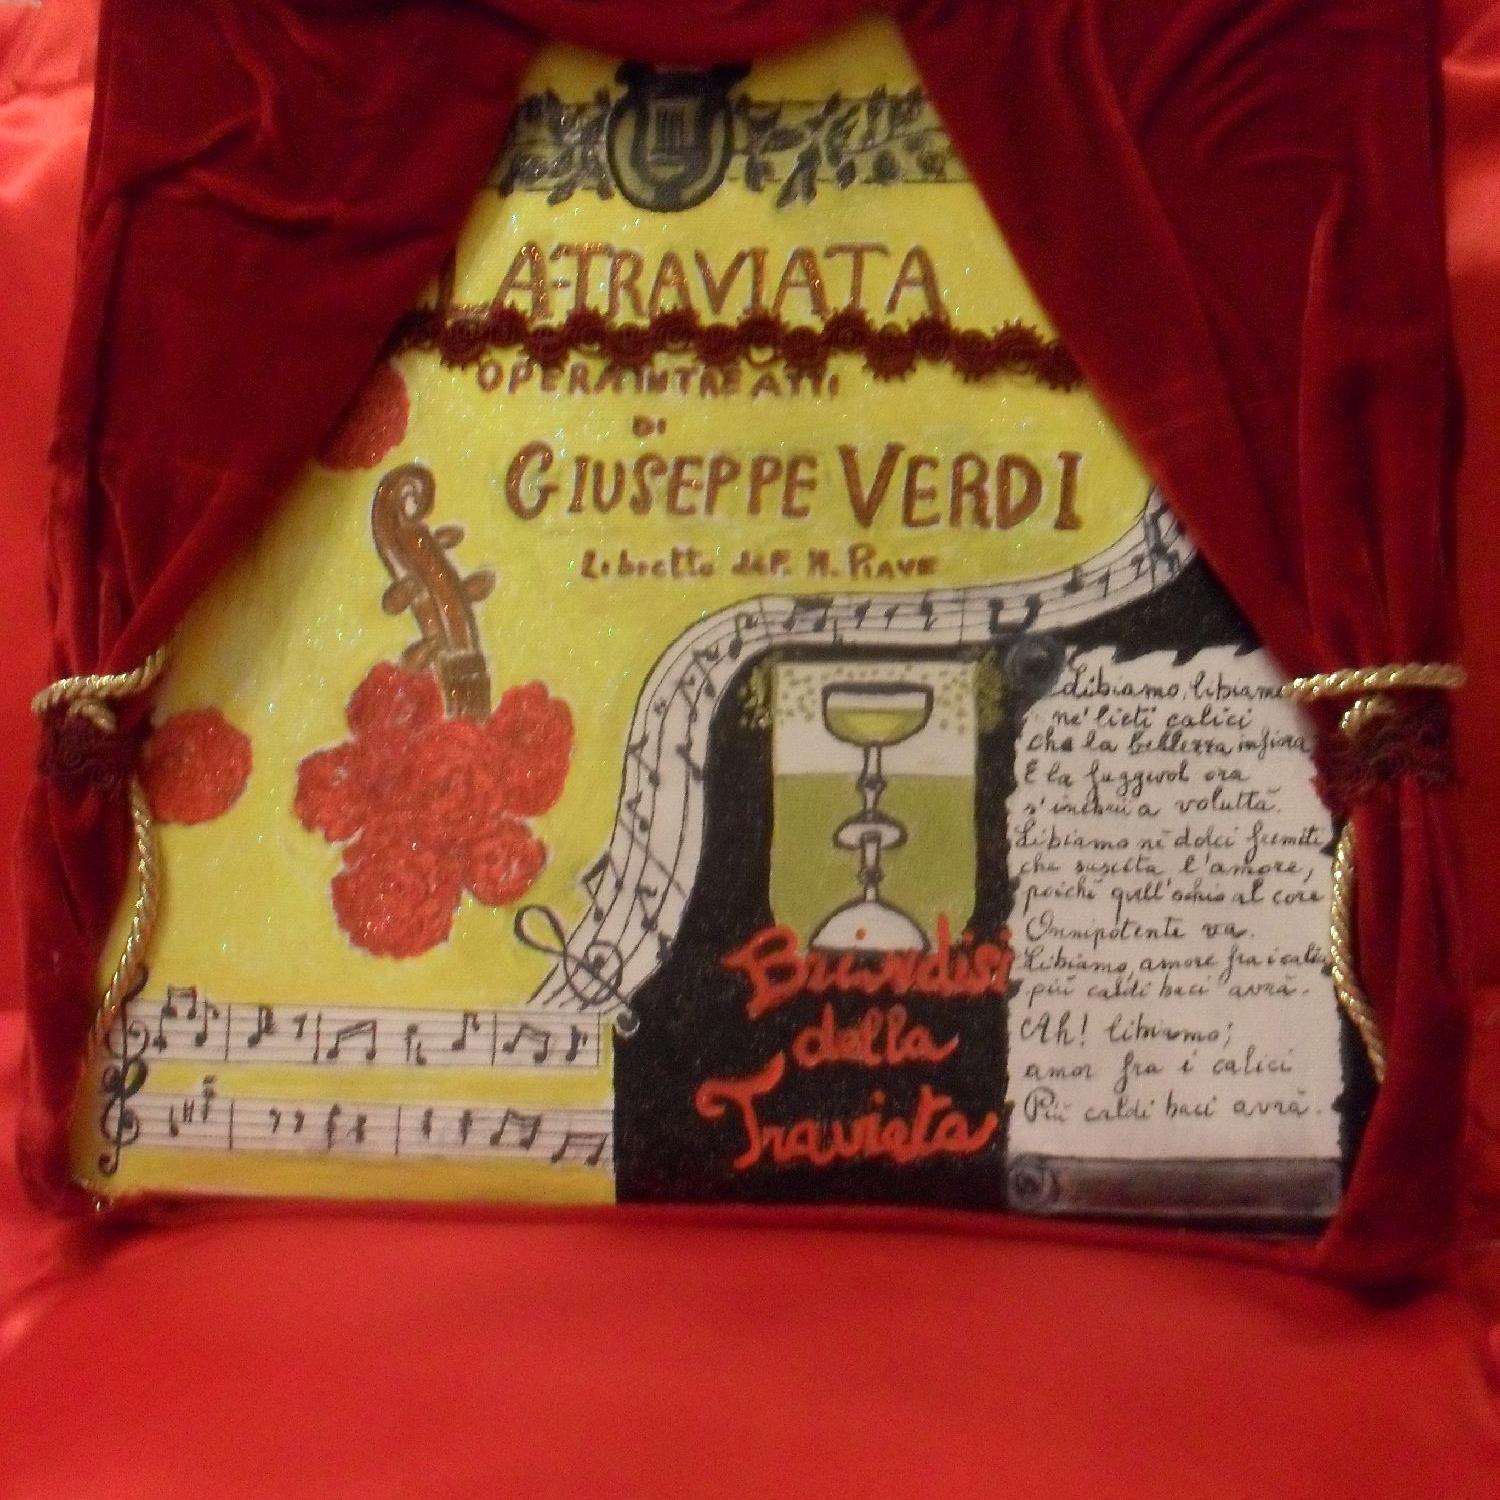 LA TRAVIATA
OPERA IN TRE ATTI
DI
GIUSEPPE VERDI
Libretto di F. M. PIAVE
Libiamo, libiamo
ne' lieti calici
che la bellezza infiora
E la fuggevol ora
s'inebrii a voluttà.
Libiamo ne' dolci fremiti
che suscita l'amore,
poichè quell'ochio al core
Onnipotente va.
Libiamo, amore fra i calici
più caldi baci avrà.
Ah! libiamo;
amor fra i calici
Più caldi baci avrà.
Brindisi
della
Traviata